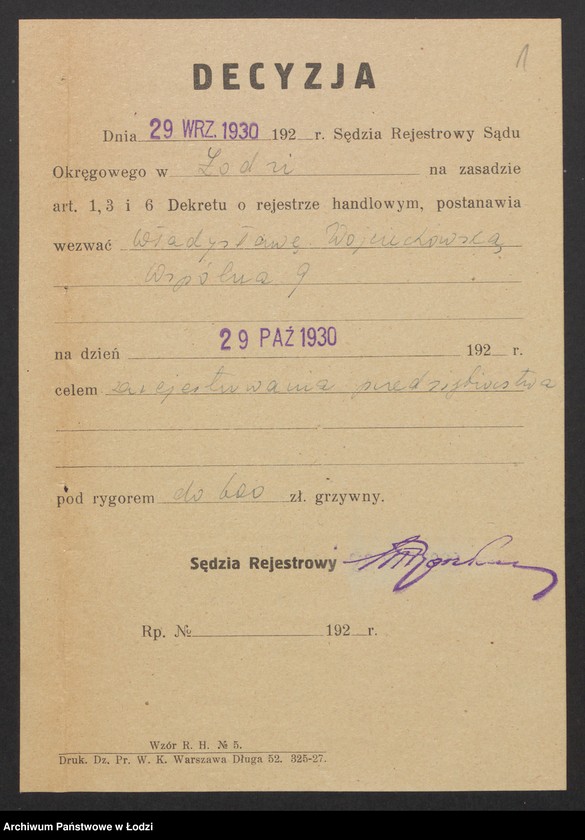 1
DECYZJA
Dnia 29 WRZ. 1930 192 r. Sędzia Rejestrowy Sądu
Okręgowego w Łodzi na zasadzie
art. 1, 3 i 6 Dekretu o rejestrze handlowym, postanawia
wezwać Władysławę Wojciechowską
Wspólna 9
na dzień 29 PAŹ 1930 192 r.
celem zarejestrowania przedsiębiorstwa
pod rygorem do 600 zł. grzywny.
Sędzia Rejestrowy
Rp. № 192 r.
Wzór R. H. № 5.
Druk. Dz. Pr. W. K. Warszawa Długa 52. 325-27.
Archiwum Państwowe w Łodzi